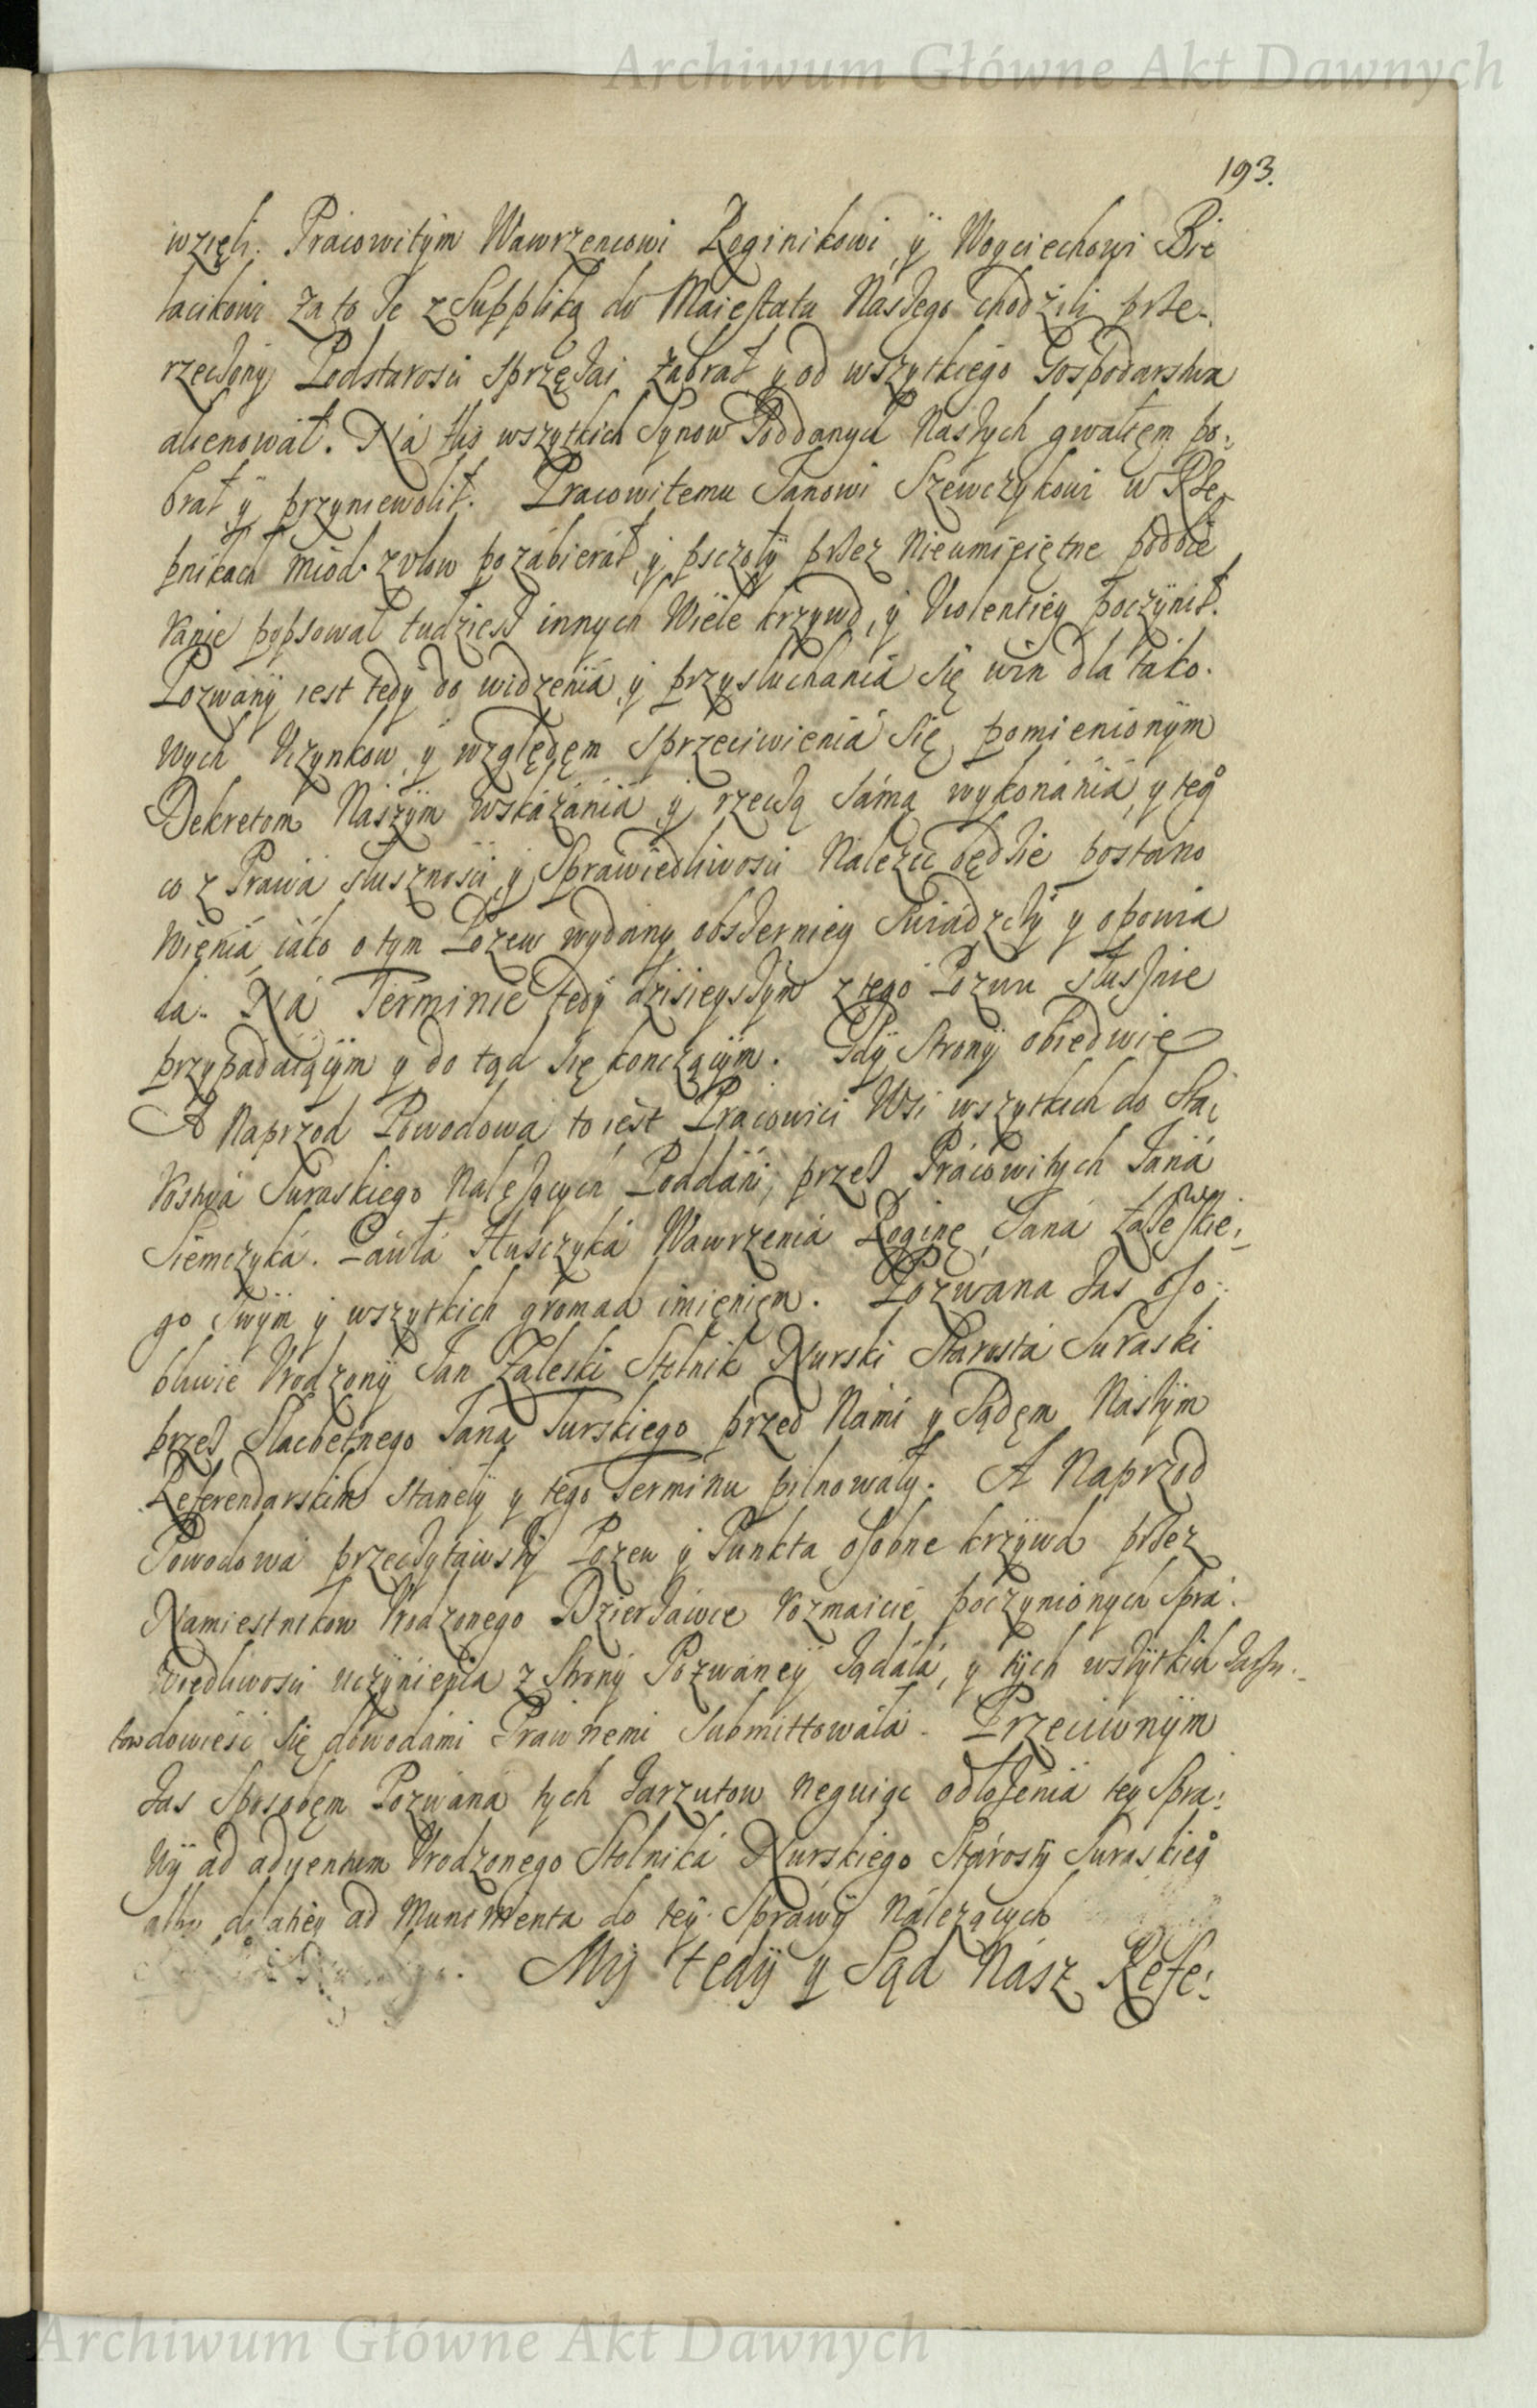 Archiwum Główne Akt Dawnych
193.
wzięli. Prácowitÿm Wawrzencowi Roginikowi, ÿ Woyciechowi Bie
lacikowi za to że z Suppliką do Maiestatu Nászego chodzili prze-
rzeczony Podstarosci sprzężai zabrał y od wszytkiego Gospodarstwa
alienował. Ná tłis wszytkich Synow Poddanych Naszych gwałtęm po:
brał ÿ przyniewolił. Pracowitemu Janowi Szewczykowi w Rze
pnikach miod z vlow pozábierał, ÿ psczoły przez nieumieiętne podbie
ranie popsował tudziesz innych Wiele krzywd, ÿ Violentiey poczÿnił.
Pozwány iest tedy do widzeniá y przysłuchaniá się win dla táko.
wych Uczynkow, y względęm sprzeciwieniá się pomienionÿm
Dekretom Nászÿm wskázániá ÿ rzeczą sámą wykonániá, y tego
co z Prawá słusznosci y Sprawiedliwosci należeć będzie postano
wieniá, iáko o tym Pozew wydany obszerniey Swiádzczy y opowia
da. Ná Terminie tedy dzisieyszÿm z tego Pozwu słusznie
przypadaiącÿm y do tąd się kończącÿm. Gdÿ Strony obiedwie
A Naprzod Powodowa to iest Pracowici Wsi wszytkich do Sta:
rostwá Suraskiego Należących Poddáni, przez Prácowitych Janá
Siemczyká. Páwłá Kusczyká Wawrzeńca Roginę, Janá Zaleskie:
go Swÿm ÿ wszytkich gromad imięnięm. Pozwana zas oso:
bliwie Vrodzony Jan Zaleski Stolnik Nurski Starosta Suraski
przez Slachetnego Jana Turskiego przed Námi y Sądęm Nászÿm
Referendarskim stanęły y tego Terminu pilnowáły. A Naprzod
Powodowa przeczytawszy Pozew ÿ Punkta osobne krzÿwd przez
Namiestnikow Vrodzonego Dzierżáwce rozmaicie poczynionych Sprá:
wiedliwosci uczynieniá z Strony Pozwáneÿ żądáłá, y tych wszÿtkich zarzu:
tow dowieść się dowodámi Práwnemi Submittowáłá. Przeciwnÿm
zas Sposobęm Pozwána tych zarzutow neguiąc odłożeniá tey Spra:
wÿ ad aduentum Vrodzonego Stolniká Nurskiego Stárosty Suraskiego
albo dilatiey ad Munimenta do teÿ Spráwÿ Náleżących
Mÿ tedÿ y Sąd Nász Refe:
Archiwum Główne Akt Dawnych